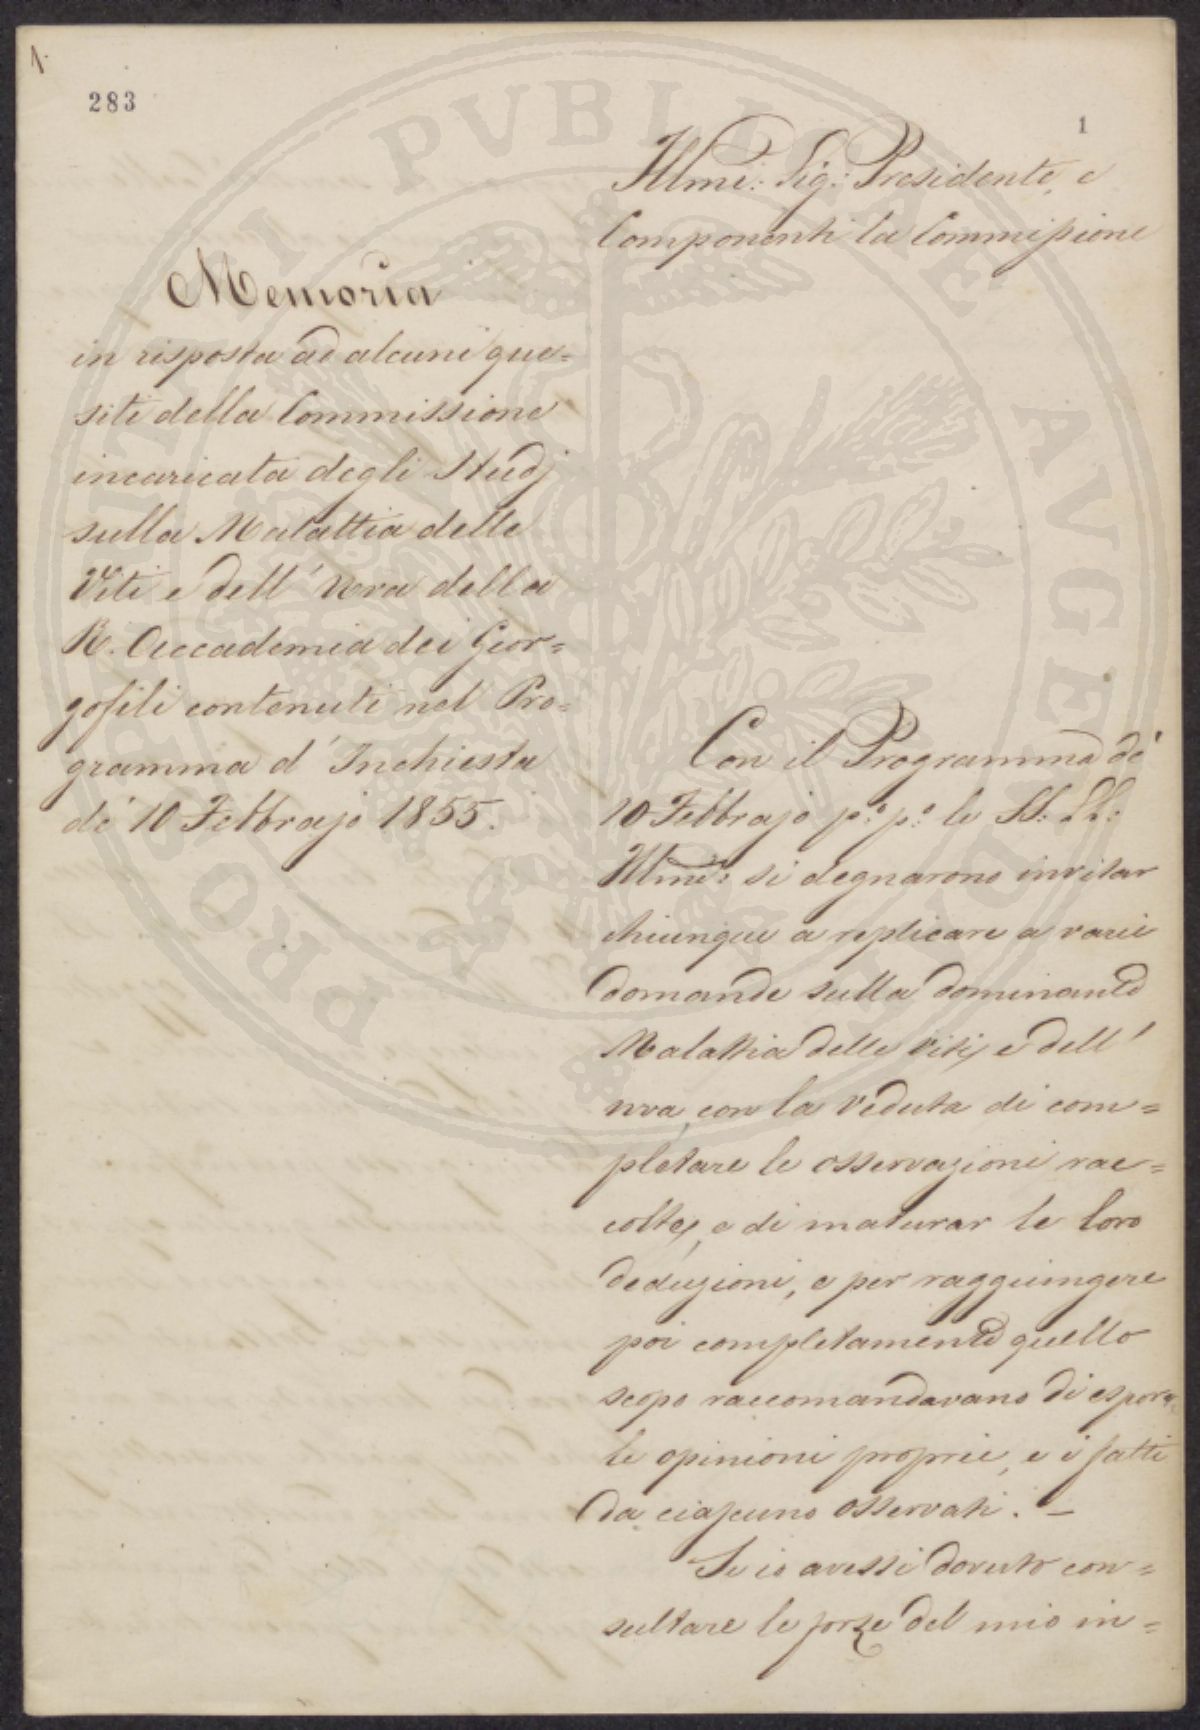 1.
283
1
Illmi: Sig:i Presidente, e
Componenti la Commissione
Memoria
in risposta ad alcuni que=
siti della Commissione
incaricata degli Studj
sulla Malattia delle
Viti e dell' Uva della
R. Accademia dei Geor=
gofili contenuti nel Pro=
gramma d' Inchiesta
de' 10 Febbrajo 1855.
Con il Programma de'
10 Febbrajo p:o p:o le SS: LL:
Illme: si degnarono invitar
chiunque a replicare a varie
domande sulla dominante
Malattia delle viti, e dell'
uva, con la veduta di com=
pletare le osservazioni rac=
colte, e di maturar le loro
deduzioni, e per raggiungere
poi completamente quello
scopo raccomandavano di esporre
le opinioni proprie, e i fatti
da ciascuno osservati. –
Se io avessi dovuto con=
sultare le forze del mio in=
PROSPERITATI PVBLICAE AVGENDAE